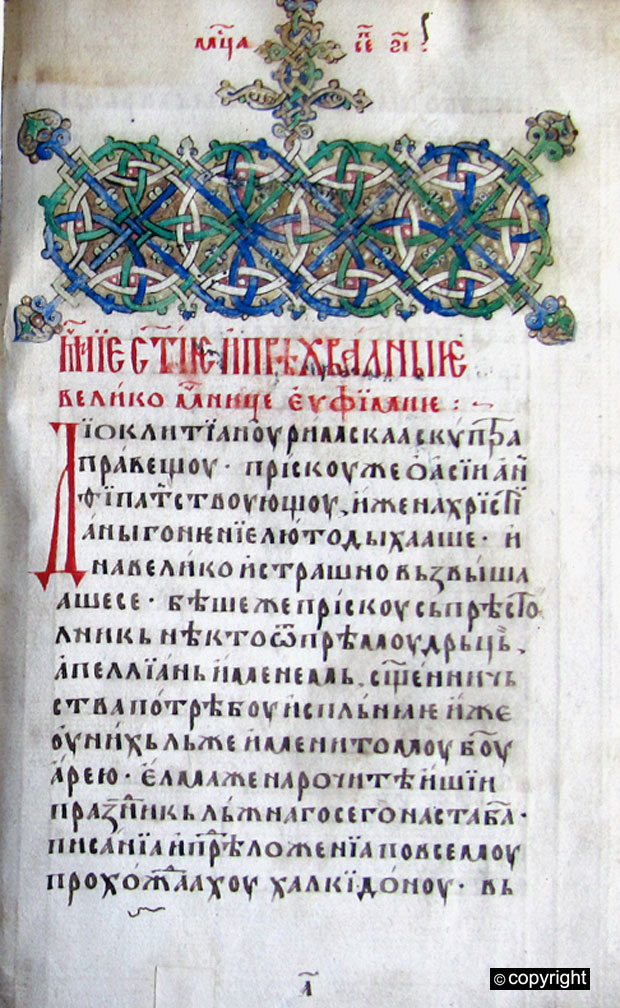 мц҃а сеⷫ҇ ѕ҃і :
мч҃нїе ст҃ые и прѣхвалныѥ
велико мч҃нице еѵфимиѥ : ~
Дїоклитїаноу римскаа скѵпⷮра
правещоу · прїскоу же ѡ асїи ан
ѳїпатⷭ҇твоующоу, иже на хрⷭ҇тїи
аны гонѥнїе люто дыхааше · и
на велико и страшно вьзвыша
аше се · бѣше же прїскоу сьпрѣсто
лникь нѣкто ѿ прѣмоудрыцⷯь,
апеллїань именемь, сщ҃еннич ь
ства потрѣбоу испльнꙗѥ иже
оу нихь льжеименитомоу б҃оу
арею · елма же нарочитѣишїи
празⷣникь льжнаго сего наста б҃а ·
писанїа и прⷣѣложенїа по всемоу
прохожⷣаахоу халкїдоноу · вь
а҃
© copyright